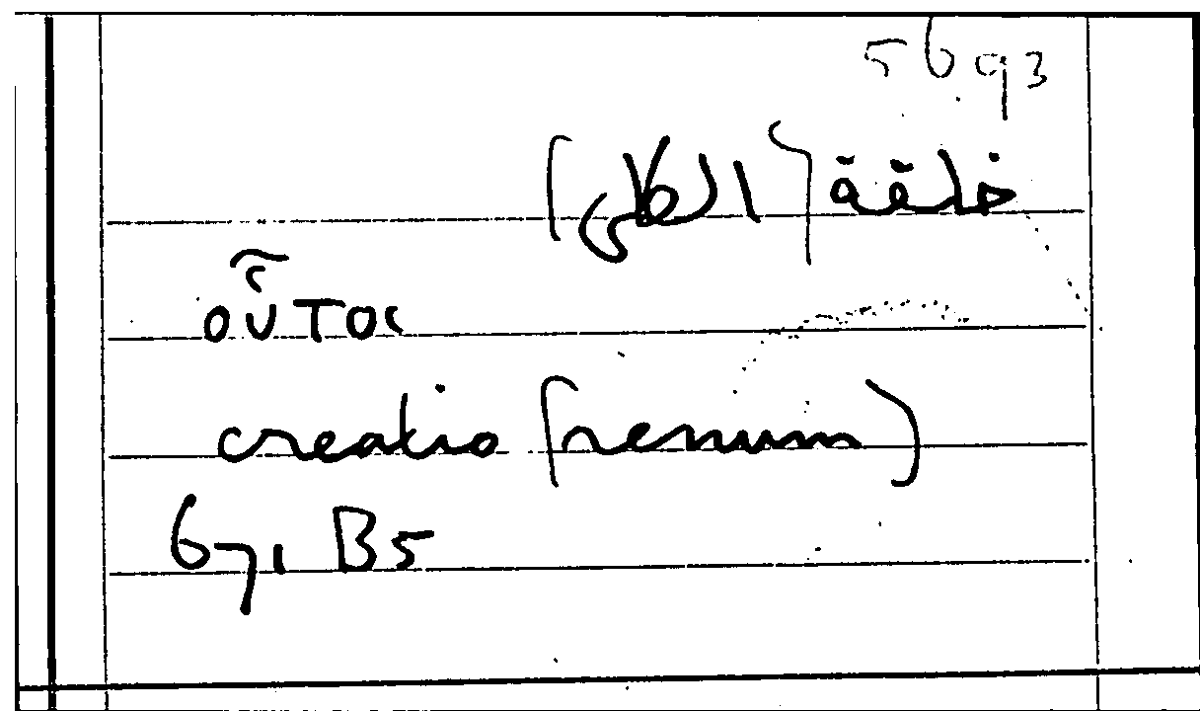 5693
خلقة (الكلى)
οὗτος
creatio (renum)
671 B5